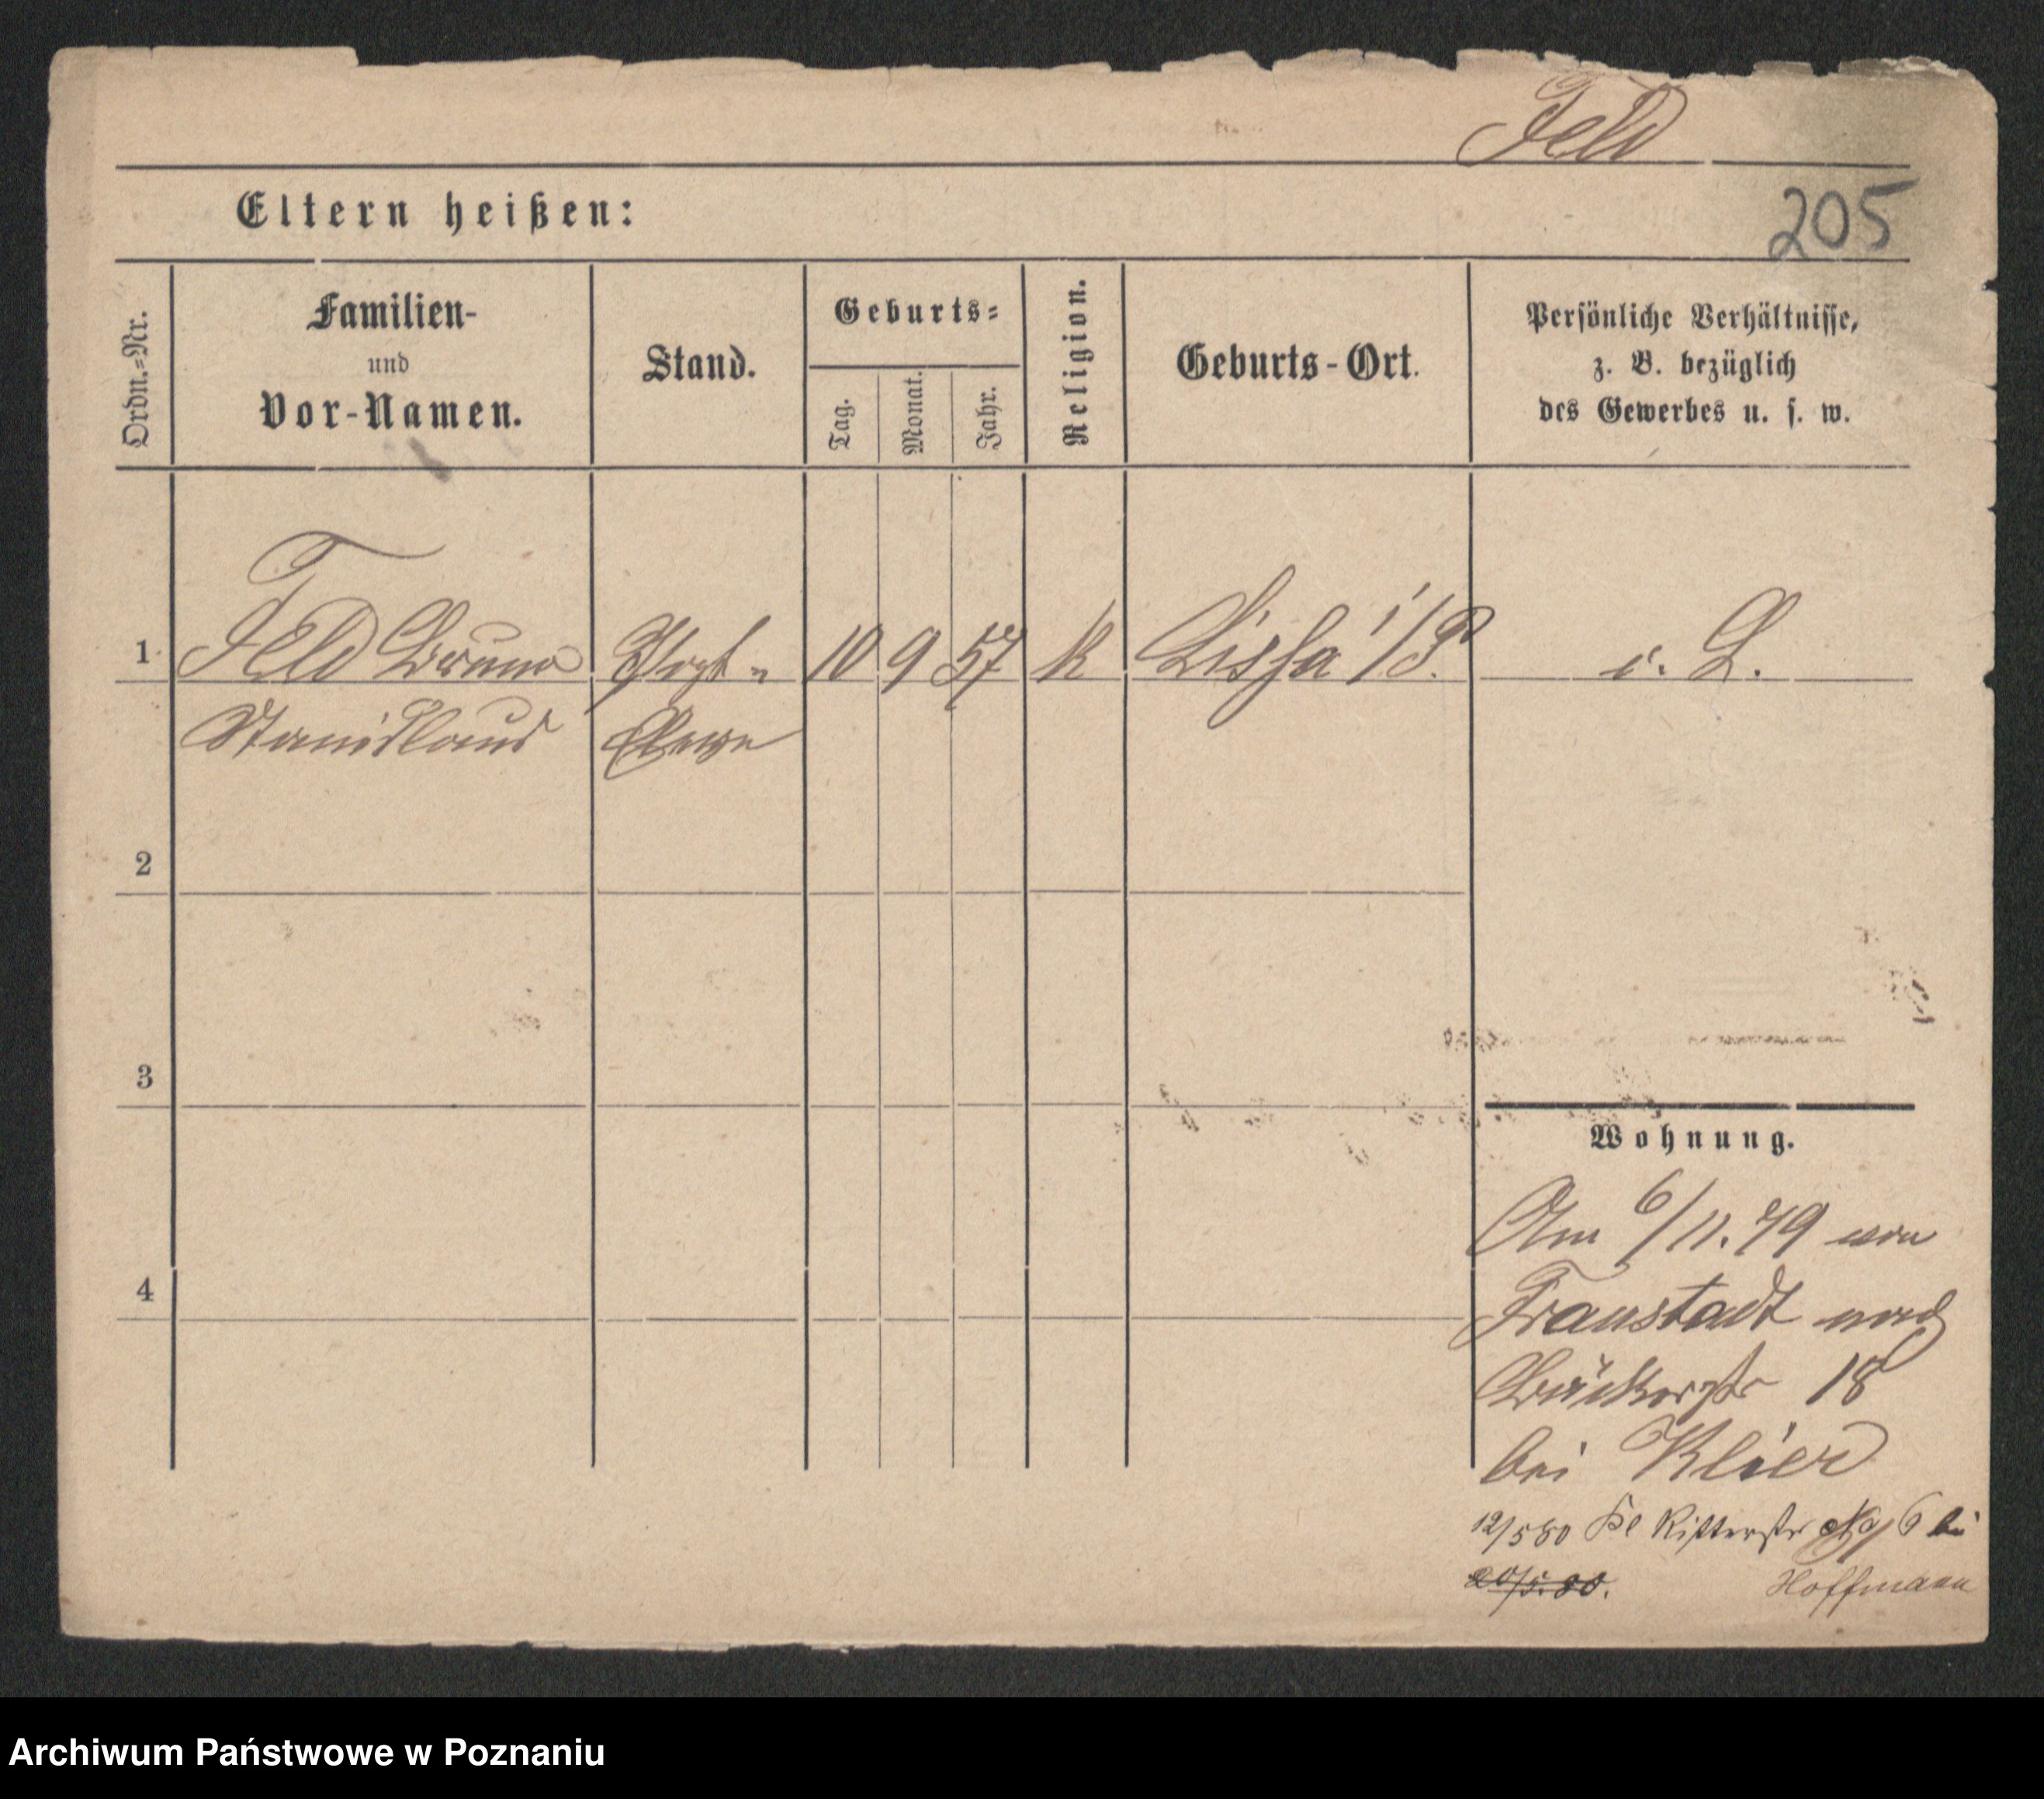 Feld
Eltern heißen:
205
Ordn.=Nr.
Familien-
und
Vor-Namen.
Stand.
Geburts=
Tag.
Monat.
Jahr.
Religion.
Geburts-Ort.
Persönliche Verhältnisse,
z. B. bezüglich
des Gewerbes u. s. w.
1 Feld Bruno 10 9 57 K Lissa i/P. i. L.
Stanislaus
2
3
4
Wohnung.
Am 6/11. 79 von
Fraustadt nach
Bäckerstr 18
bei Klier
12/5 80 Kl Ritterstr No 6 bei
20/5. 80. Hoffmann
Archiwum Państwowe w Poznaniu